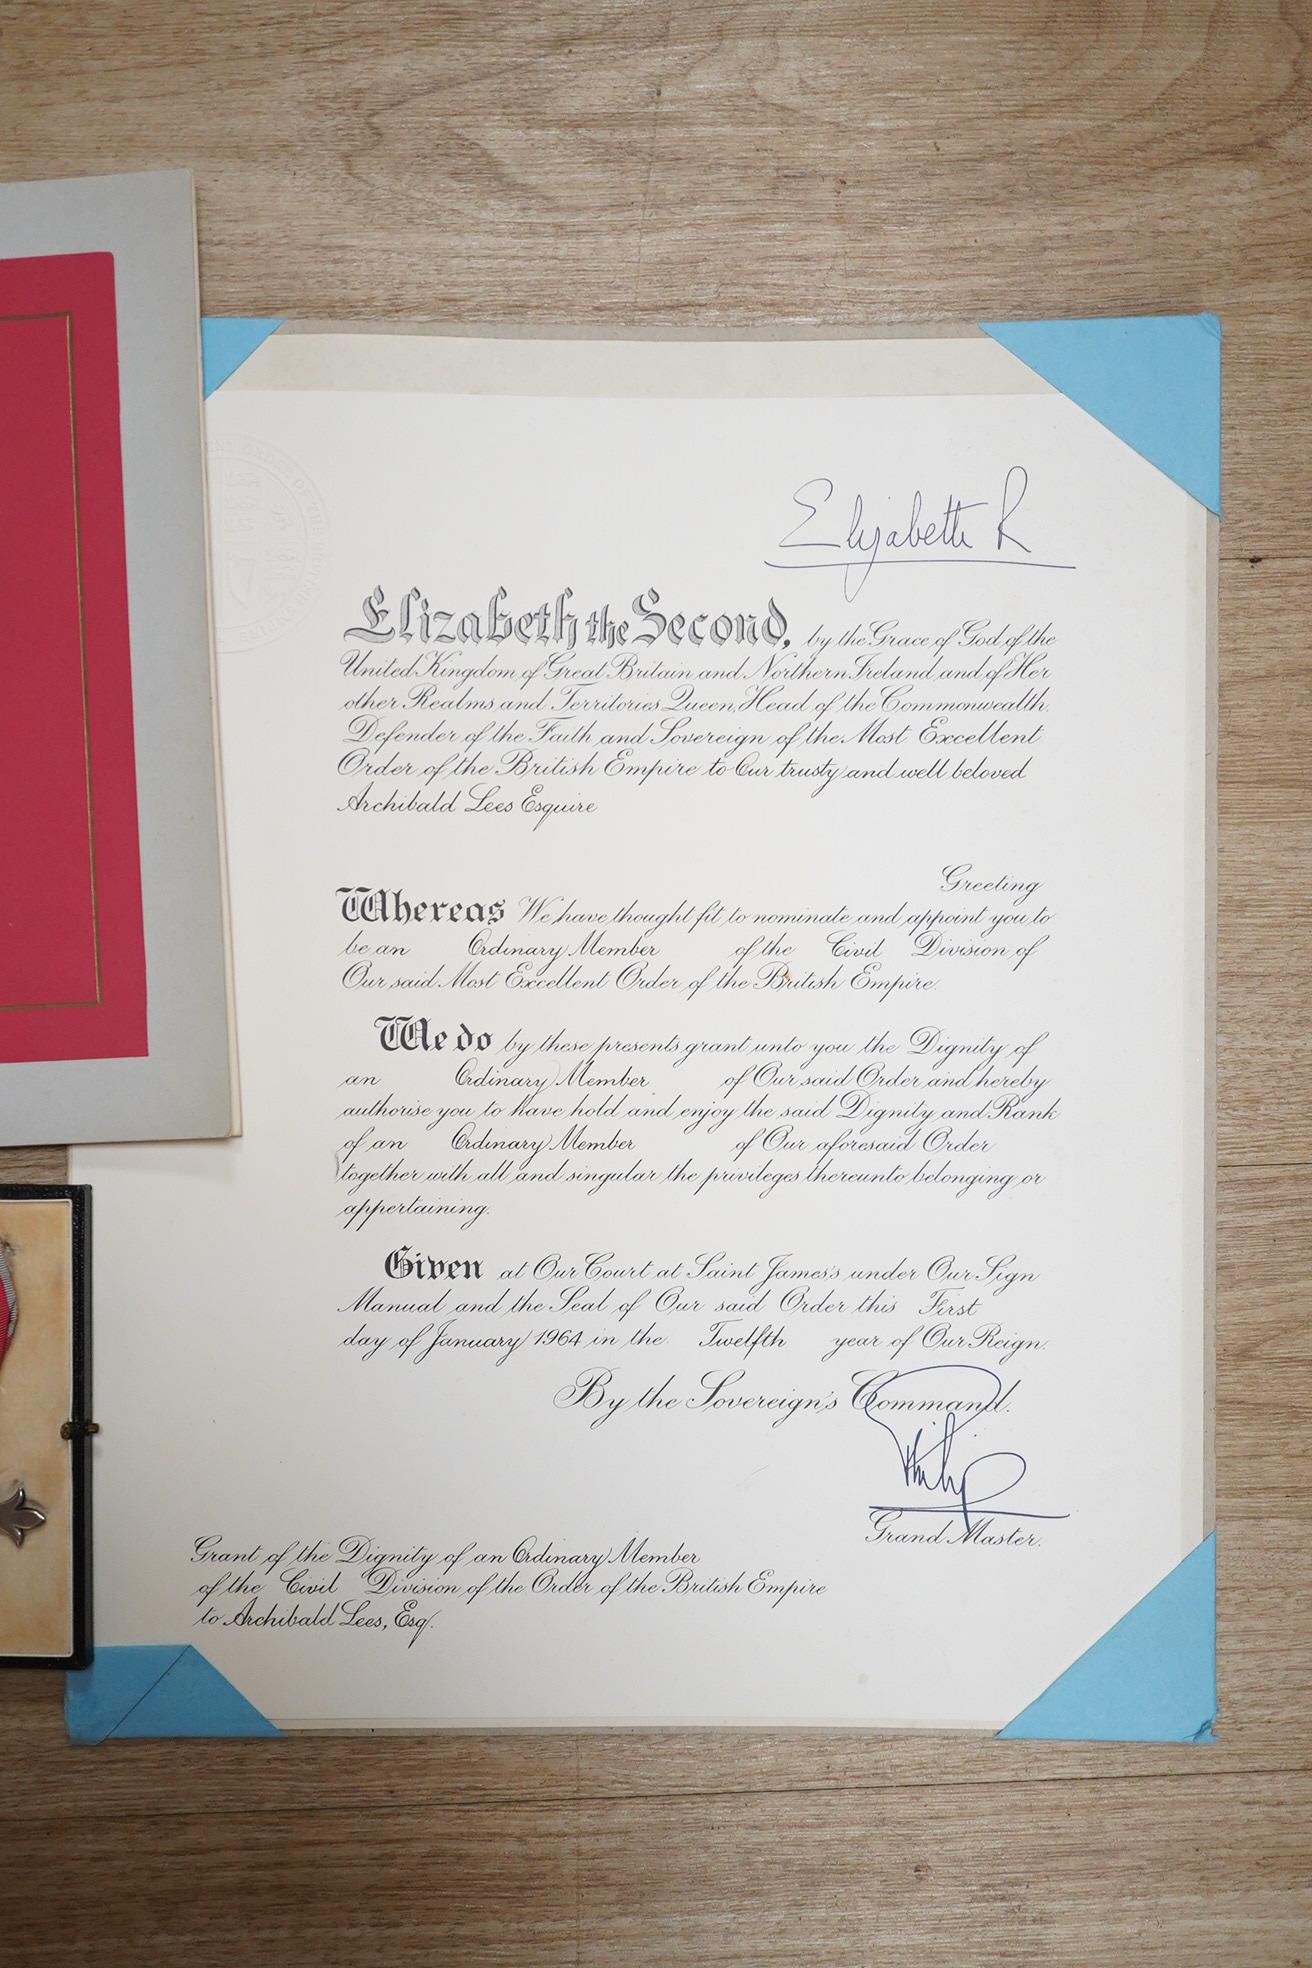 Elizabeth R
Elizabeth the Second, by the Grace of God of the
United Kingdom of Great Britain and Northern Ireland and of Her
other Realms and Territories Queen, Head of the Commonwealth,
Defender of the Faith and Sovereign of the Most Excellent
Order of the British Empire to Our trusty and well beloved
Archibald Lees Esquire
Greeting
Whereas We have thought fit to nominate and appoint you to
be an Ordinary Member of the Civil Division of
Our said Most Excellent Order of the British Empire
We do by these presents grant unto you the Dignity of
an Ordinary Member of Our said Order and hereby
authorise you to have hold and enjoy the said Dignity and Rank
of an Ordinary Member of Our aforesaid Order
together with all and singular the privileges thereunto belonging or
appertaining.
Given at Our Court at Saint James's under Our Sign
Manual and the Seal of Our said Order this First
day of January 1964 in the Twelfth year of Our Reign.
By the Sovereign's Command.
Philip
Grand Master.
Grant of the Dignity of an Ordinary Member
of the Civil Division of the Order of the British Empire
to Archibald Lees, Esq.